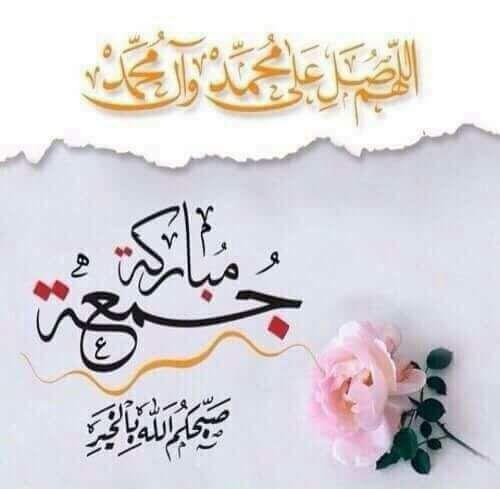 اللهم صل على محمد وآل محمد
جمعة مباركة
صبحكم الله بالخير